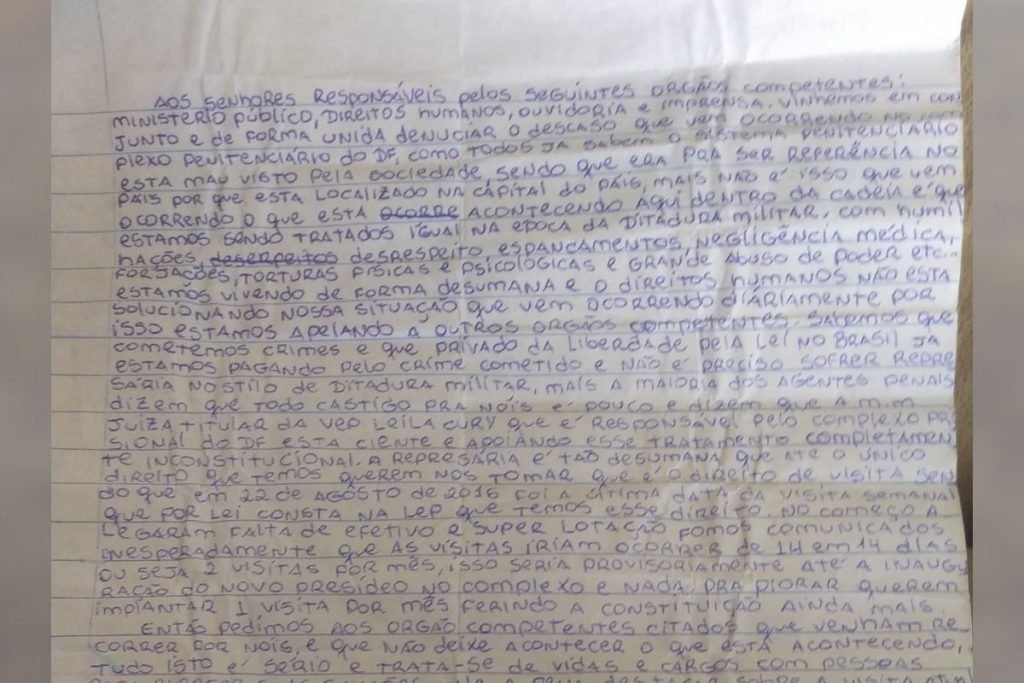 AOS SENHORES RESPONSÁVEIS PELOS SEGUINTES ORGÃOS COMPETENTES:
MINISTÉRIO PÚBLICO, DIREITOS HUMANOS, OUVIDORIA E IMPRENSA, VINHEMOS EM CON
JUNTO E DE FORMA UNIDA DENUCIAR O DESCASO QUE VEM OCORRENDO NO
PLEXO PENITENCIÁRIO DO DF, COMO TODOS JA SABEM O SISTEMA PENITENCIÁRIO
ESTA MAU VISTO PELA SOCIEDADE, SENDO QUE ERA PRA SER REFERÊNCIA NO
PAÍS POR QUE ESTA LOCALIZADO NA CAPITAL DO PAÍS, MAIS NÃO É ISSO QUE VEM
OCORRENDO O QUE ESTA OCORRE ACONTECENDO AQUI DENTRO DA CADEIA É QUE
ESTAMOS SENDO TRATADOS IGUAL NA EPOCA DA DITADURA MILITAR, COM HUMIL
HAÇÕES, DESERPEITOS DESRESPEITO, ESPANCAMENTOS, NEGLIGÊNCIA MÉDICA,
FORJAÇÕES, TORTURAS FÍSICAS E PSICOLÓGICAS E GRANDE ABUSO DE PODER ETC...
ESTAMOS VIVENDO DE FORMA DESUMANA E O DIREITOS HUMANOS NÃO ESTA
SOLUCIONANDO NOSSA SITUAÇÃO QUE VEM OCORRENDO DIÁRIAMENTE POR
ISSO ESTAMOS APELANDO A OUTROS ORGÃOS COMPETENTES. SABEMOS QUE
COMETEMOS CRIMES E QUE PRIVADO DA LIBERDADE PELA LEI NO BRASIL JA
ESTAMOS PAGANDO PELO CRIME COMETIDO E NÃO É PRECISO SOFRER REPRE
SÁRIA NO STILO DE DITADURA MILITAR, MAIS A MAIORIA DOS AGENTES PENAIS
DIZEM QUE TODO CASTIGO PRA NÓIS É POUCO E DIZEM QUE A M.M
JUÍZA TITULAR DA VEP LEILA CURY QUE É RESPONSÁVEL PELO COMPLEXO PRI
SIONAL DO DF ESTA CIENTE E APOIANDO ESSE TRATAMENTO COMPLETAMEN
TE INCONSTITUCIONAL. A REPRESÁRIA É TÃO DESUMANA QUE ATÉ O ÚNICO
DIREITO QUE TEMOS QUEREM NOS TOMAR QUE É O DIREITO DE VISITA SEN
DO QUE EM 22 DE AGOSTO DE 2016 FOI A ÚTIMA DATA DA VISITA SEMANAL
QUE POR LEI CONSTA NA LEP QUE TEMOS ESSE DIREITO. NO COMEÇO A
LEGARAM FALTA DE EFETIVO E SUPER LOTAÇÃO FOMOS COMUNICADOS
INESPERADAMENTE QUE AS VISITAS IRIAM OCORRER DE 14 EM 14 DIAS
OU SEJA 2 VISITAS POR MÊS, ISSO SERIA PROVISORIAMENTE ATÉ A INAUGU
RAÇÃO DO NOVO PRESÍDEO NO COMPLEXO E NADA, PRA PIORAR QUEREM
IMPLANTAR 1 VISITA POR MÊS FERINDO A CONSTITUIÇÃO AINDA MAIS.
ENTÃO PEDIMOS AOS ORGÃO COMPETENTES CITADOS QUE VENHAM RE
CORRER POR NÓIS, E QUE NÃO DEIXE ACONTECER O QUE ESTÁ ACONTECENDO,
TUDO ISTO É SÉRIO E TRATA-SE DE VIDAS E CARGOS COM PESSOAS